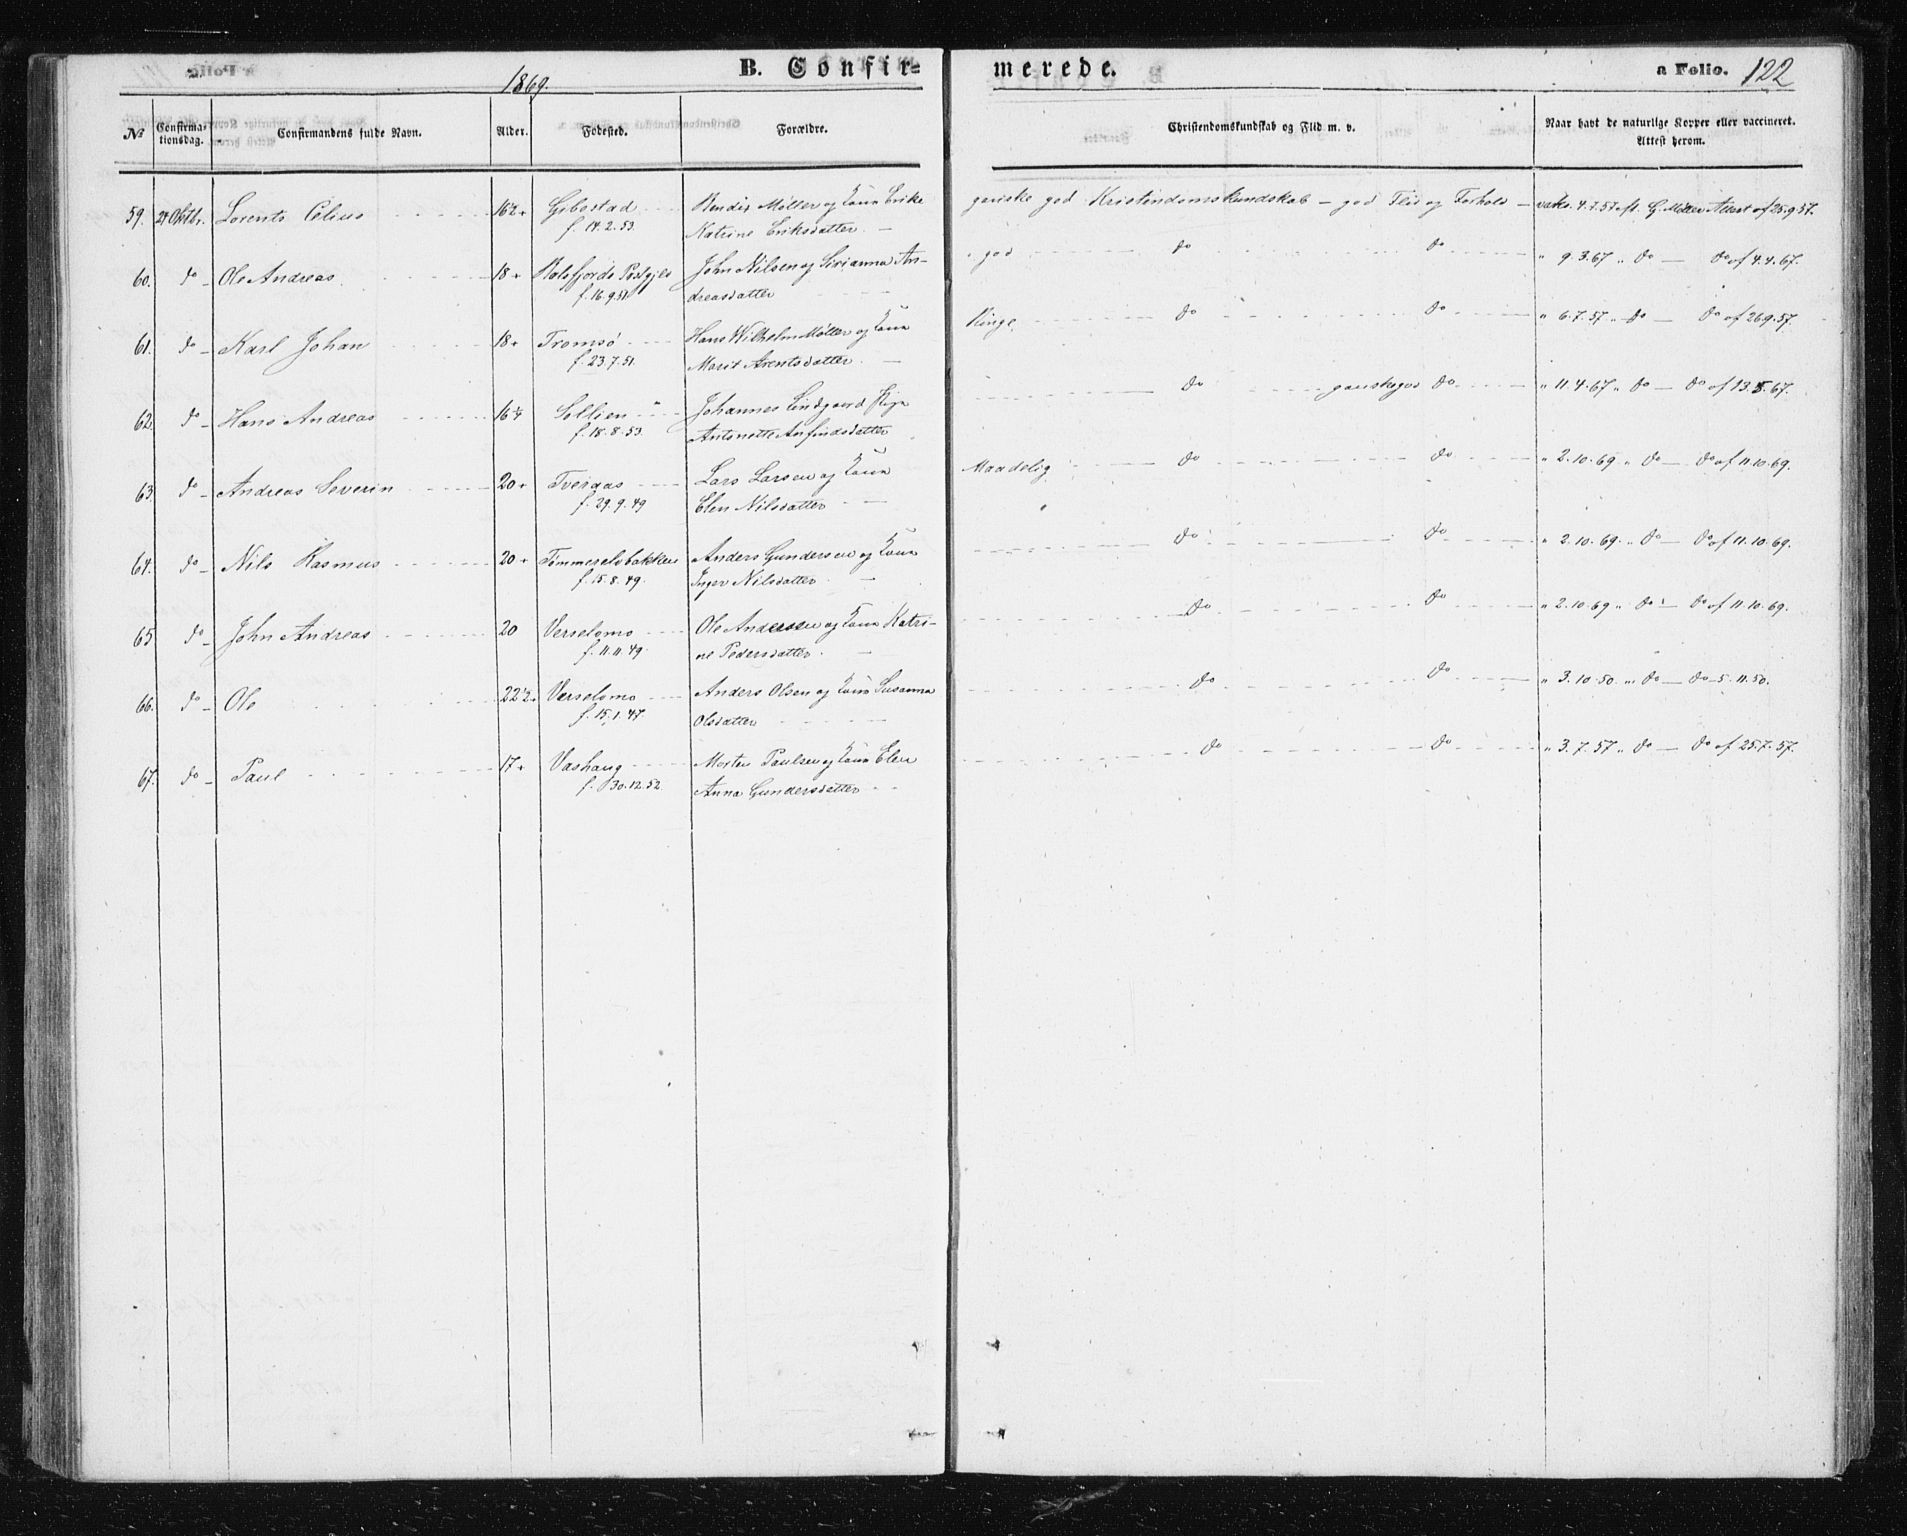 B. Confir=
merede.
a Folio. 122
1869.
No
Confirma-
tionsdag.
Confirmandens fulde Navn.
Alder.
Fødested.
Forældre.
Christendomskundskab og Flid m. v.
Naar havt de naturlige Kopper eller vaccineret.
Attest herom.
59. 24 Oktbr. Lorents Celius 16½+ Gibostad Bendix Møller og Kone Erike ganske god Kristendomskundskab – god Flid og Forhold – vaks. 4.7.57 eft. G. Møller Attest af 25.9.57.
f. 14.2.53. Katrine Eriksdatter
60. do Ole Andreas 18+ Balsfjords Postgjeld John Nilsen og Sirianna An- god do do " 9.3.67 " do do af 4.4.67.
f. 16.9.51 dreasdatter
61. do Karl Johan 18+ Tromsø Hans Wilhelm Møller og Kone Ringe do do " 6.7.57 " do do af 26.9.57.
f. 23.7.51. Marit Arentsdatter
62. do Hans Andreas 16¼ Sollien Johannes Lindgaard Pige do ganske god do " 11.4.67 " do do af 13.5.67.
f. 18.8.53. Antonette Arnfindsdatter
63. do Andreas Severin 20+ Tveraas Lars Larsen og Kone Maadelig do do " 2.10.69 " do do af 11.10.69.
f. 29.9.49 Elen Nilsdatter
64. do Nils Rasmus 20+ Tømmerelvbakken Anders Gundersen og Kone do do " 2.10.69. " do do af 11.10.69.
f. 15.8.49. Inger Nilsdatter
65 do John Andreas 20 Verselvmo Ole Andersen og Kone Katri- do do " 2.10.69 " do do af 11.10.69.
f. 11.11.49. ne Pedersdatter
66. do Ole 22½+ Verselvmo Anders Olsen og Kone Susanna do do " 3.10.50. " do do 5.11.50.
f. 15.1.47. Olsdatter
67. do Paul 17+ Vashaug Morten Paulsen og Kone Elen do do " 3.7.57 " do do af 25.7.57.
f. 30.12.52 Anna Gundersdatter